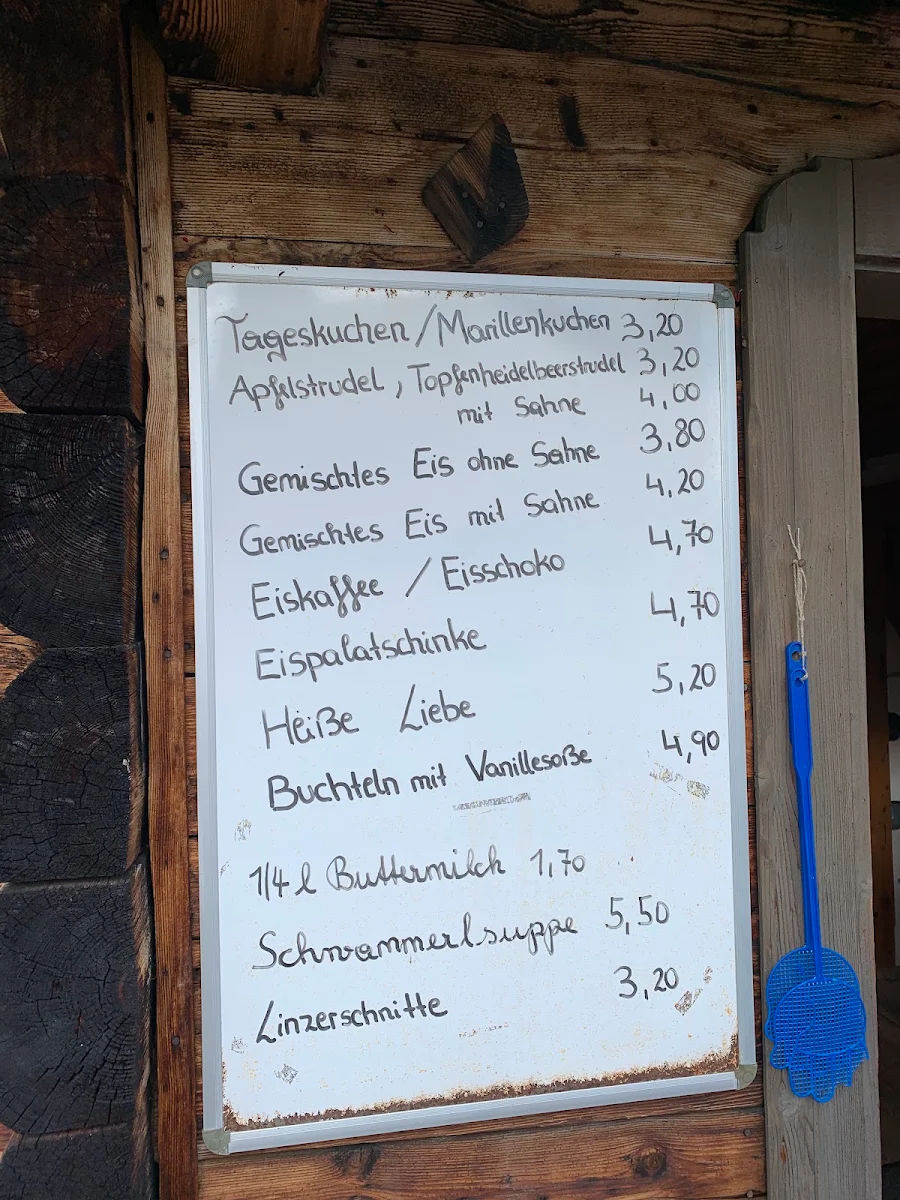 Tageskuchen/Marillenkuchen 3,20
Apfelstrudel, Topfenheidelbeerstrudel 3,20
mit Sahne 4,00
Gemischtes Eis ohne Sahne 3,80
Gemischtes Eis mit Sahne 4,20
Eiskaffee / Eisschoko 4,70
Eispalatschinke 4,70
Heiße Liebe 5,20
Buchteln mit Vanillesoße 4,90
1/4 l Buttermilch 1,70
Schwammerlsuppe 5,50
Linzerschnitte 3,20